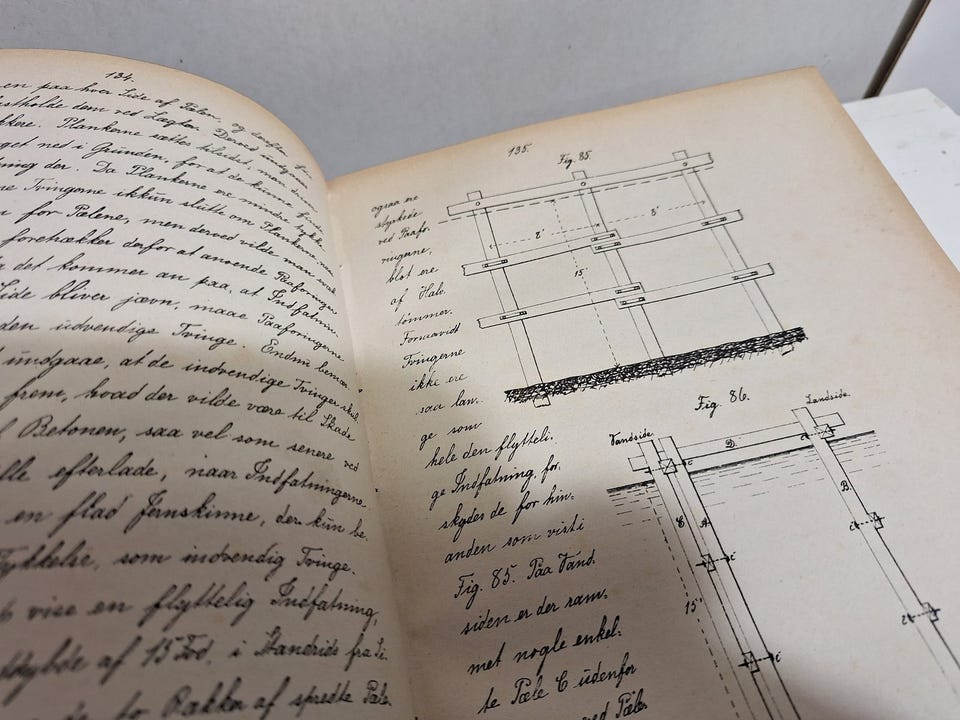 134.
en paa hver Side af Pælen, og
fastholde dem ved Lægter. Derved
Plankerne sættes
get ned i Grunden, for at de kunne
ning der. Da Plankerne ere mindre
ne Tvingerne ikkun slutte om Plankerne,
for Pælene, men derved vilde man
foretrækker derfor at anvende Paaforinger
det kommer an paa, at Indfatnin
Side bliver jævn, maae Paaforingerne
den udvendige Tvinge. Endnu bemær
undgaae, at de indvendige Tvinger skul
frem, hvad der vilde være til Skade
Betonen, saa vel som senere ved
lle efterlade, naar Indfatningerne
en flad Jernskinne, der kun be-
Tykkelse, som indvendig Tvinge.
vise en flyttelig Indfatning,
dybde af 15 Fod. i Standside fra Si-
to Rækker af spredte Pæle
135.
Fig. 85.
8'
8'
15'
ogsaa ere
styrkede
ved Paafo-
ringerne,
blot ere
af Halv-
tømmer.
Forsaavidt
Tvingerne
ikke ere
saa lan-
ge som
hele den flytteli-
ge Indfatning, for-
skydes de for hin-
anden som vist i
Fig. 85. Paa Vand-
siden er der ram-
met nogle enkel-
te Pæle C udenfor
ved Pæle
Fig. 86.
Vandside.
Landside.
D
c
c
C
A
B
c
c
c
c
15'